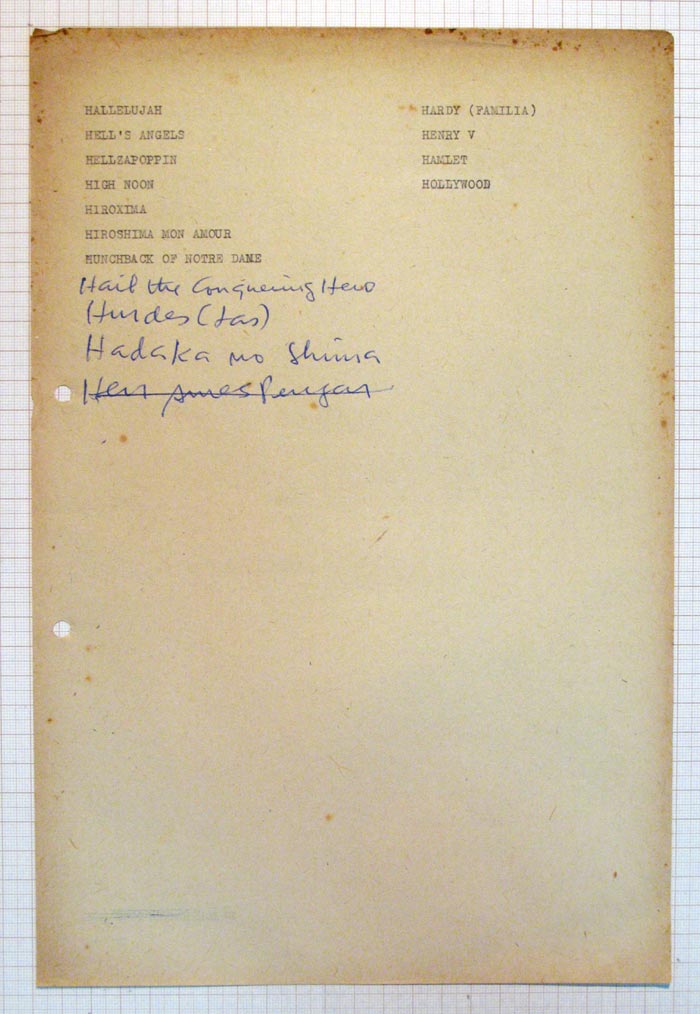 HALLELUJAH
HELL'S ANGELS
HELLZAPOPPIN
HIGH NOON
HIROXIMA
HIROSHIMA MON AMOUR
HUNCHBACK OF NOTRE DAME
Hail the Conquering Hero
Hurdes (Las)
Hadaka no Shima
HARDY (FAMILIA)
HENRY V
HAMLET
HOLLYWOOD